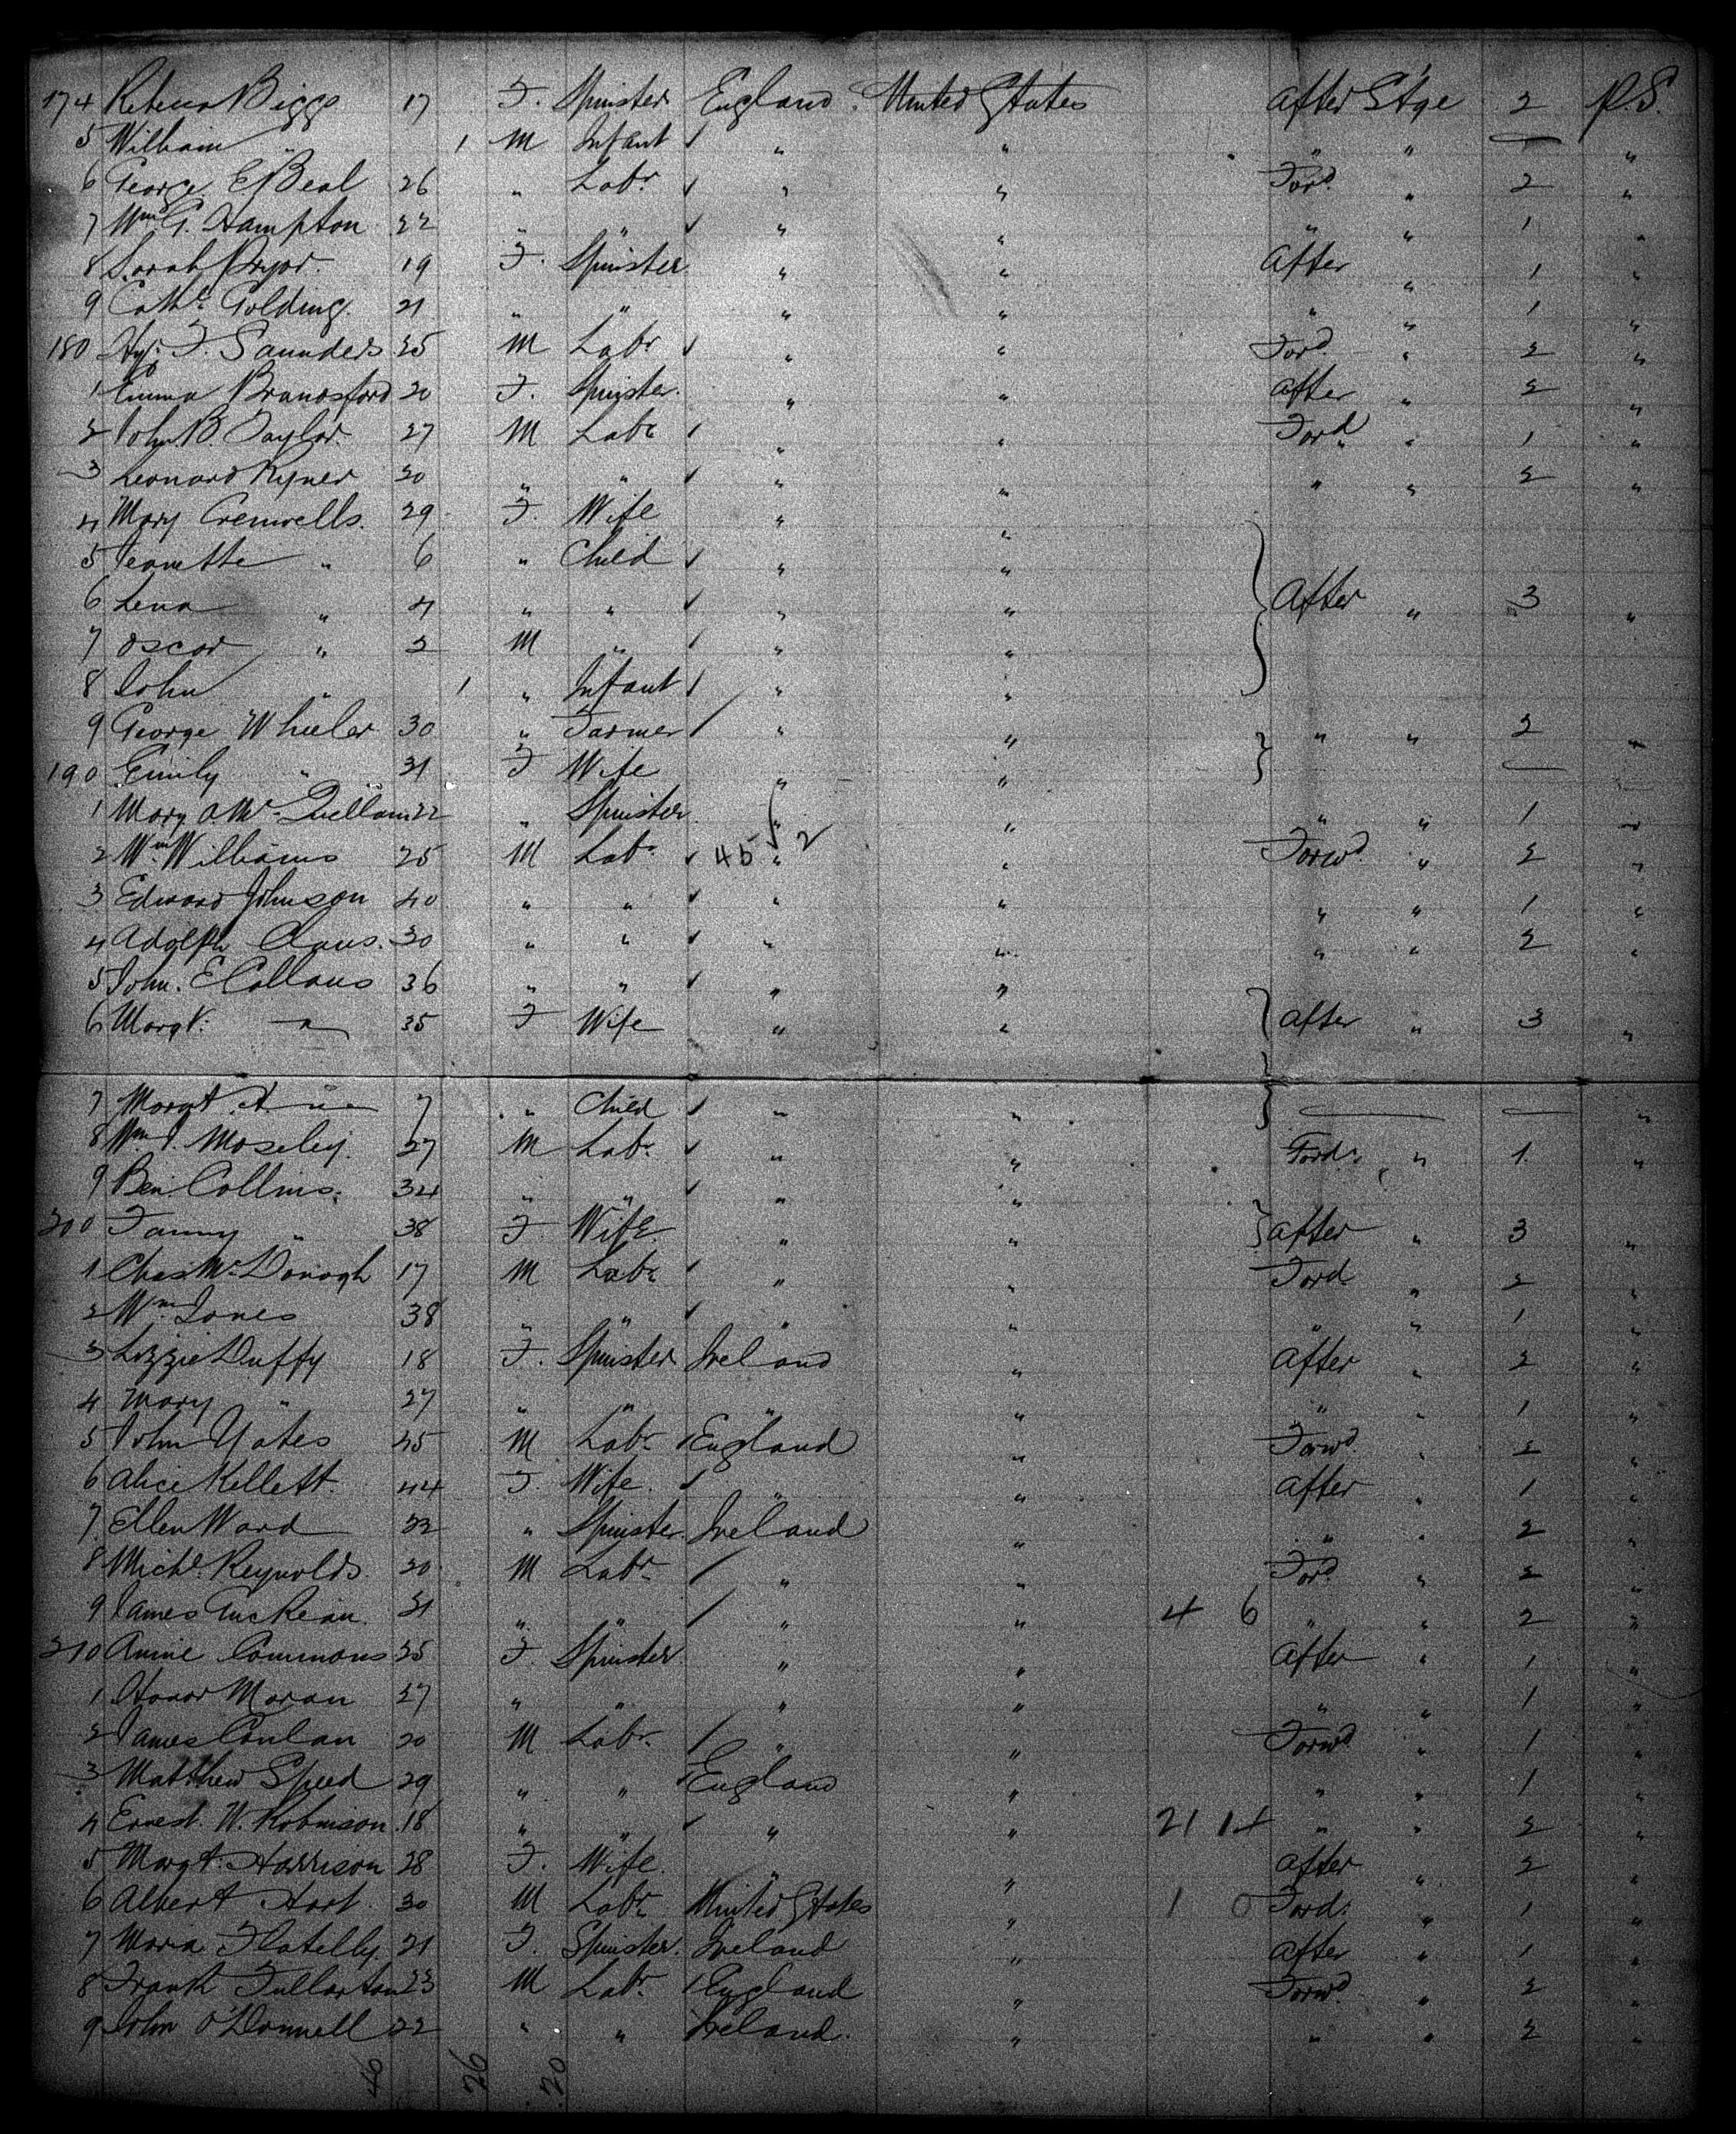 174 Rebecca Biggs 17 F. Spinster England United States After Stge 2 P.S.
5 William " 1 M Infant " " " " — "
6 George E Beal 26 " Labr " " Ford " 2 "
7 Wm G. Hampton 22 " " " " " " 1 "
8 Sarah Pryor. 19 F. Spinster " " After " 1 "
9 Cathe Golding. 21 " " " " " " 1 "
180 Hy. F. Saunders 25 M Labr " " Ford " 2 "
1 Emma Brandsford 20 F. Spinster. " " After " 2 "
2 John B. Taylor. 27 M Labr " " Ford " 1 "
3 Leonard Ryner 20 " " " " " " 2 "
4 Mary Cremwells. 29 F. Wife " "
5 Jeanette " 6 " Child " "
6 Lena " 4 " " " " After " 3 "
7 Oscar " 2 M " " "
8 John " 1 " Infant " "
9 George Wheeler 30 " Farmer " " " " 2 "
190 Emily " 31 F Wife " " —
1 Mary A. Mc 22 " Spinster " " " " 1 "
2 Wm Williams 25 M Labr 45 " 2 " Forwd " 2 "
3 Edward Johnson 40 " " " " " " 1 "
4 Adolph Claus. 30 " " " " " " 2 "
5 John. E Collans 36 " " " "
6 Margt. " 35 F Wife " " After " 3 "
7 Margt. A. " 7 " Child " " — — "
8 Wm J. Moseley. 27 M Labr. " " Ford. " 1. "
9 Ben Collins. 34 " " " "
200 Fanny " 38 F. Wife. " " After " 3 "
1 Chas Mc Donogh 17 M Labr " " Ford " 2 "
2 Wm Jones 38 " " " " " " 1 "
3 Lizzie Duffy 18 F. Spinster Ireland " After " 2 "
4 Mary " 27 " " " " " " 1 "
5 John Yates 25 M Labr England " Forwd " 2 "
6 Alice Kellett. 44 F. Wife. " " After " 1 "
7 Ellen Ward 22 " Spinster. Ireland " " " 2 "
8 Michl. Reynolds. 20 M Labr " " Ford " 2 "
9 James 21 " " " " 4 6 " " 2 "
210 Annie Commons 25 F. Spinster " " After " 1 "
1 Honor Moran 27 " " " " " " 1 "
2 James Conlan 20 M Labr. " " Forwd " 1 "
3 Matthew Speed 29 " " England " " " 1 "
4 Ernest. W. Robinson. 18 " " " " 21 14 " " 2 "
5 Margt. Harrison 28 F. Wife. " " After " 2 "
6 Albert Hart. 30 M Labr United States " 1 0 Ford. " 1 "
7 Maria Flatelly. 21 F. Spinster. Ireland " After " 1 "
8 Frank Fullarton 23 M Labr England " Forwd " 2 "
9 John O'Donnell 22 " " Ireland. " " " 2 "
46 26 20